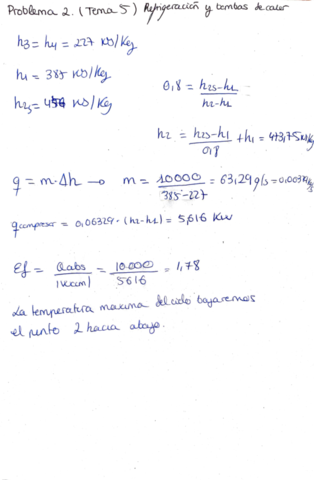 Problema 2. (Tema 5) Refrigeración y bombas de calor
h3 = h4 = 227 KJ/Kg
h1 = 385 KJ/Kg
h2s = 456 KJ/Kg
0,8 = (h2s-h1)/(h2-h1)
h2 = (h2s-h1)/0,8 + h1 = 473,75 KJ/Kg
q = m·Δh → m = 10000/(385-227) = 63,29 g/s = 0,063 Kg/s
q compresor = 0,06329·(h2-h1) = 5,616 KW
Ef = Qabs/|Wcom| = 10.000/5616 = 1,78
La temperatura maxima del ciclo bajaremos
el punto 2 hacia abajo.